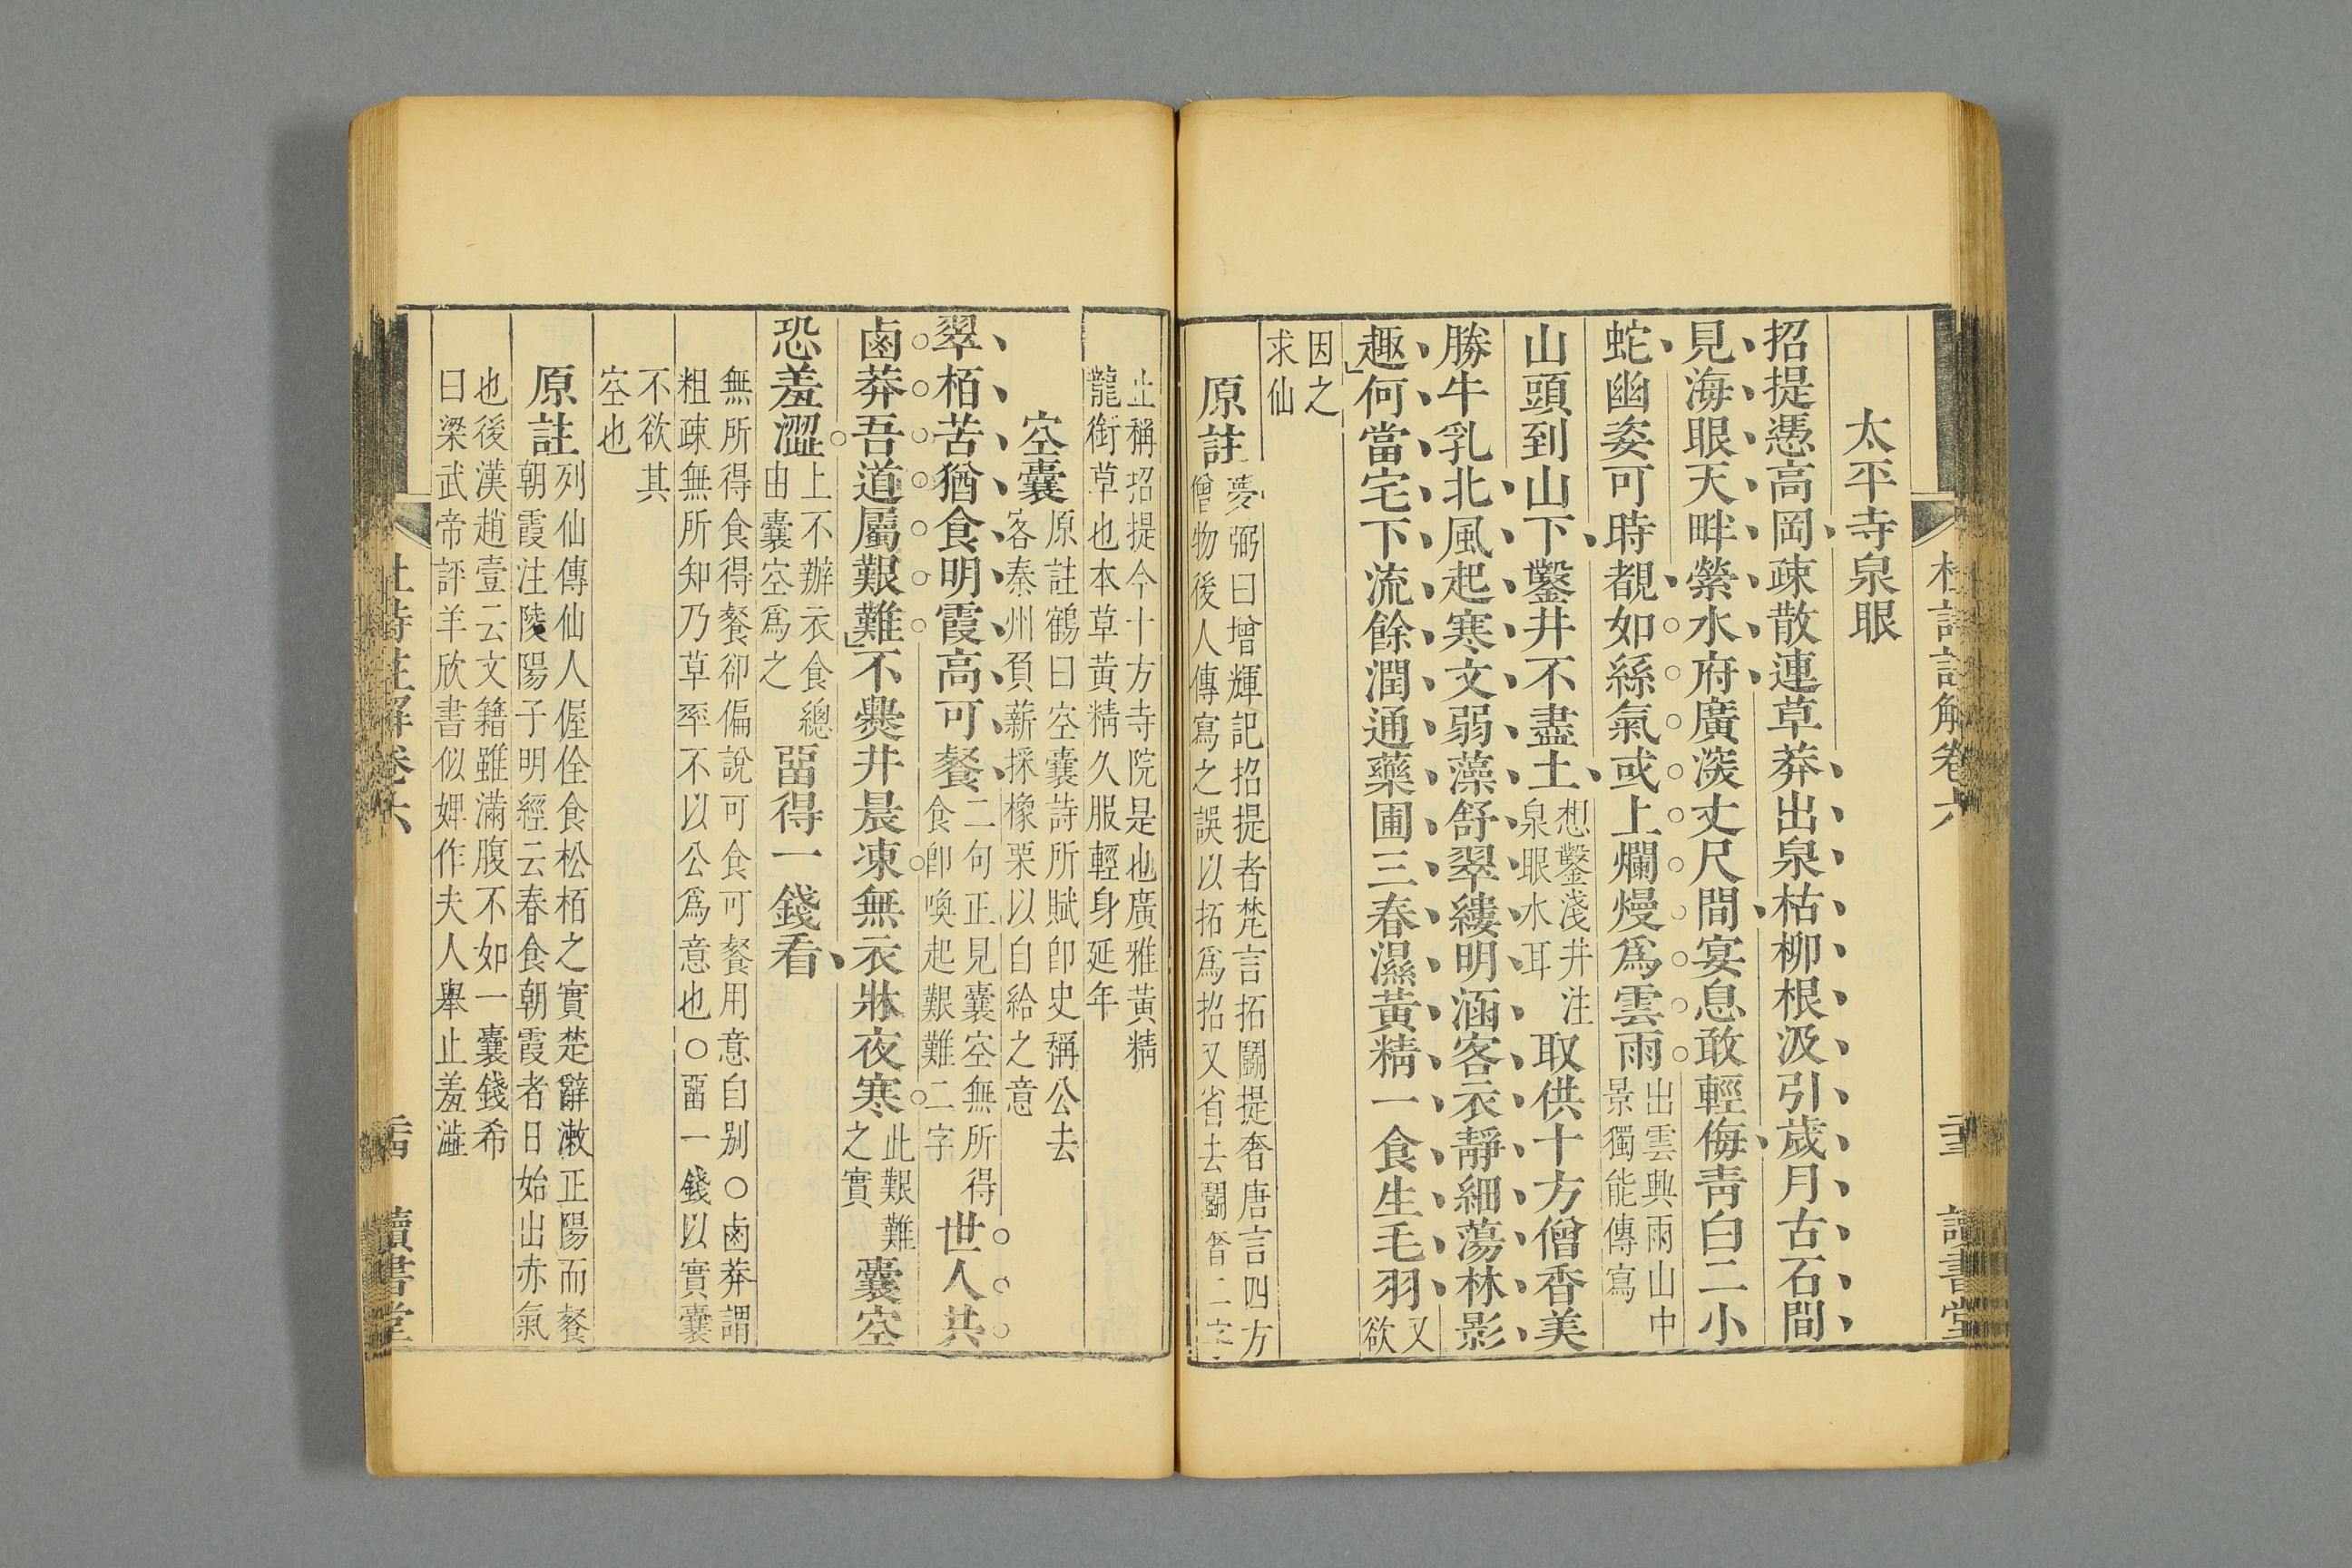 太平寺泉眼
招提憑高岡疎散連草莽出泉枯柳根汲引歲月古石間
見海眼天畔縈水府廣㴱丈尺間宴息敢輕侮靑白二小
蛇幽姿可時覩如絲氣或上爛熳爲雲雨出雲興雨山中景獨能傳寫
山頭到山下鑿井不盡土想鑿淺井注泉眼水耳取供十方僧香美
勝牛乳北風起寒文弱藻舒翠縷明涵客衣靜細蕩林影
趣何當宅下流餘潤通藥圃三春濕黃精一食生毛羽又欲
因之求仙
原註夢弼曰增輝記招提者梵言拓鬬提奢唐言四方
僧物後人傳寫之誤以拓爲招又省去鬬奢二字
止稱招提今十方寺院是也廣雅黃精
龍銜草也本草黃精久服輕身延年
空囊原註鶴曰空囊詩所賦卽史稱公去
客秦州負薪採橡栗以自給之意
翠柏苦猶食明霞高可餐二句正見囊空無所得食卽喚起艱難二字世人共
鹵莽吾道屬艱難不㸑井晨凍無衣牀夜寒此艱難之實囊空
恐羞澀上不辦衣食總由囊空爲之畱得一錢看
無所得食得餐卻偏說可食可餐用意自别○鹵莽謂
粗疎無所知乃草率不以公爲意也○畱一錢以實囊
不欲其
空也
原註列仙傳仙人偓佺食松柏之實楚辭漱正陽而餐
朝霞注陵陽子明經云春食朝霞者日始出赤氣
也後漢趙壹云文籍雖滿腹不如一囊錢希
曰梁武帝評羊欣書似婢作夫人舉止羞澁
杜詩註解卷六
讀書堂
杜詩註解卷六
讀書堂